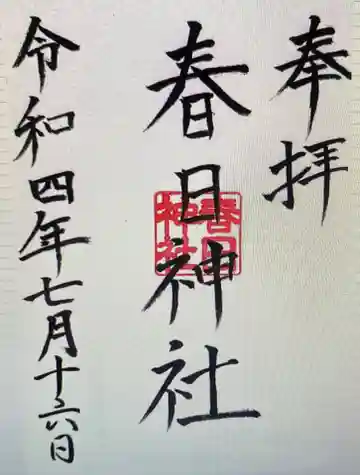 奉拝
春日神社
春日
神社
令和四年七月十六日